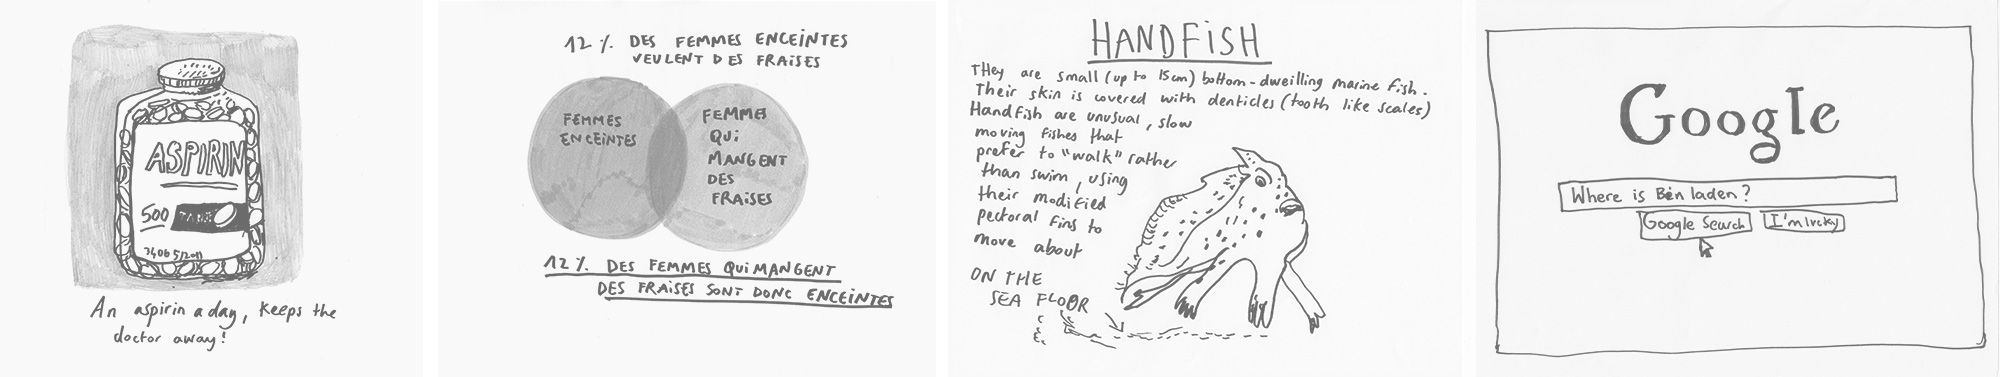 ASPIRIN
500
TABS
An aspirin a day, keeps the
doctor away!
12 % DES FEMMES ENCEINTES
VEULENT DES FRAISES
FEMMES
ENCEINTES
FEMMES
QUI
MANGENT
DES
FRAISES
12 % DES FEMMES QUI MANGENT
DES FRAISES SONT DONC ENCEINTES
HANDFISH
They are small (up to 15cm) bottom-dweilling marine fish.
Their skin is covered with denticles (tooth like scales)
Handfish are unusual, slow
moving fishes that
prefer to "walk" rather
than swim, using
their modified
pectoral fins to
move about
ON THE
SEA FLOOR
Google
Where is Bin laden?
Google Search
I'm lucky